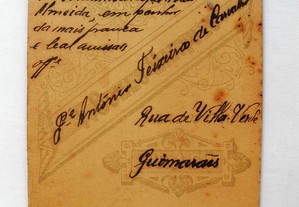 Almeida, em penhor
da mais franca
e leal amisade
offe
Je António Teixeira de Carvalho
Rua de Villa-Verde
Guimarães